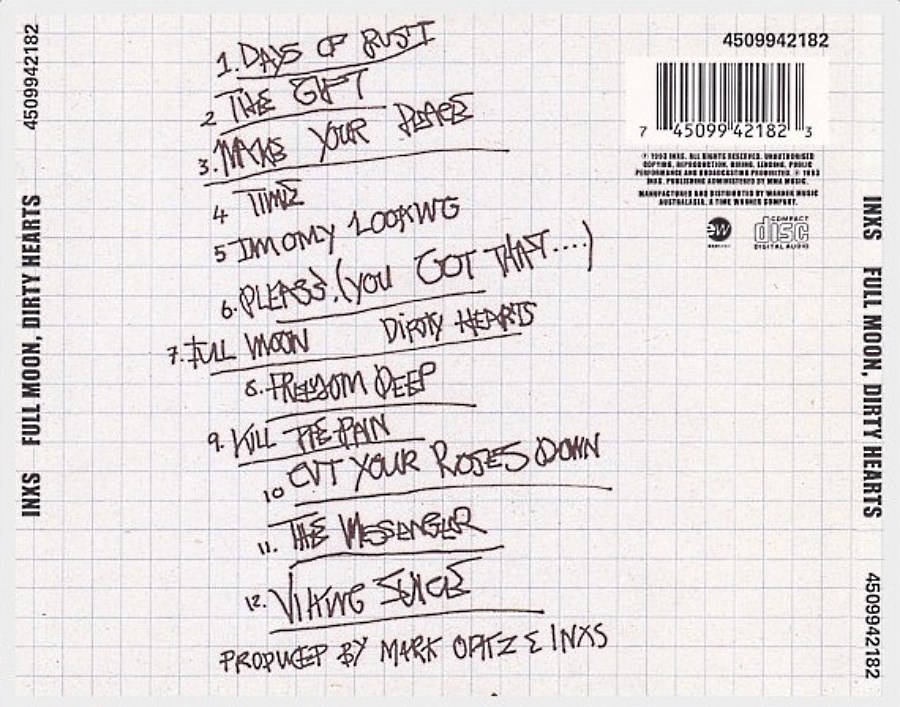 INXS FULL MOON, DIRTY HEARTS INXS 4509942182
1. DAYS OF RUST
2 THE GIFT
3. MAKE YOUR PEACE
4 TIME
5 I'M ONLY LOOKING
6. PLEASE. (YOU GOT THAT....)
7. FULL MOON DIRTY HEARTS
8. FREEDOM DEEP
9. KILL THE PAIN
10 CUT YOUR ROSES DOWN
11. THE MESSENGER
12. VIKING JUICE
PRODUCED BY MARK OPITZ & INXS
4509942182
7 45099 42182 3
℗ 1993 INXS. ALL RIGHTS RESERVED. UNAUTHORISED
COPYING, REPRODUCTION, HIRING, LENDING, PUBLIC
PERFORMANCE AND BROADCASTING PROHIBITED. © 1993
INXS. PUBLISHING ADMINISTERED BY MMA MUSIC.
MANUFACTURED AND DISTRIBUTED BY WARNER MUSIC
AUSTRALASIA, A TIME WARNER COMPANY.
ew
COMPACT
disc
DIGITAL AUDIO
INXS FULL MOON, DIRTY HEARTS 4509942182